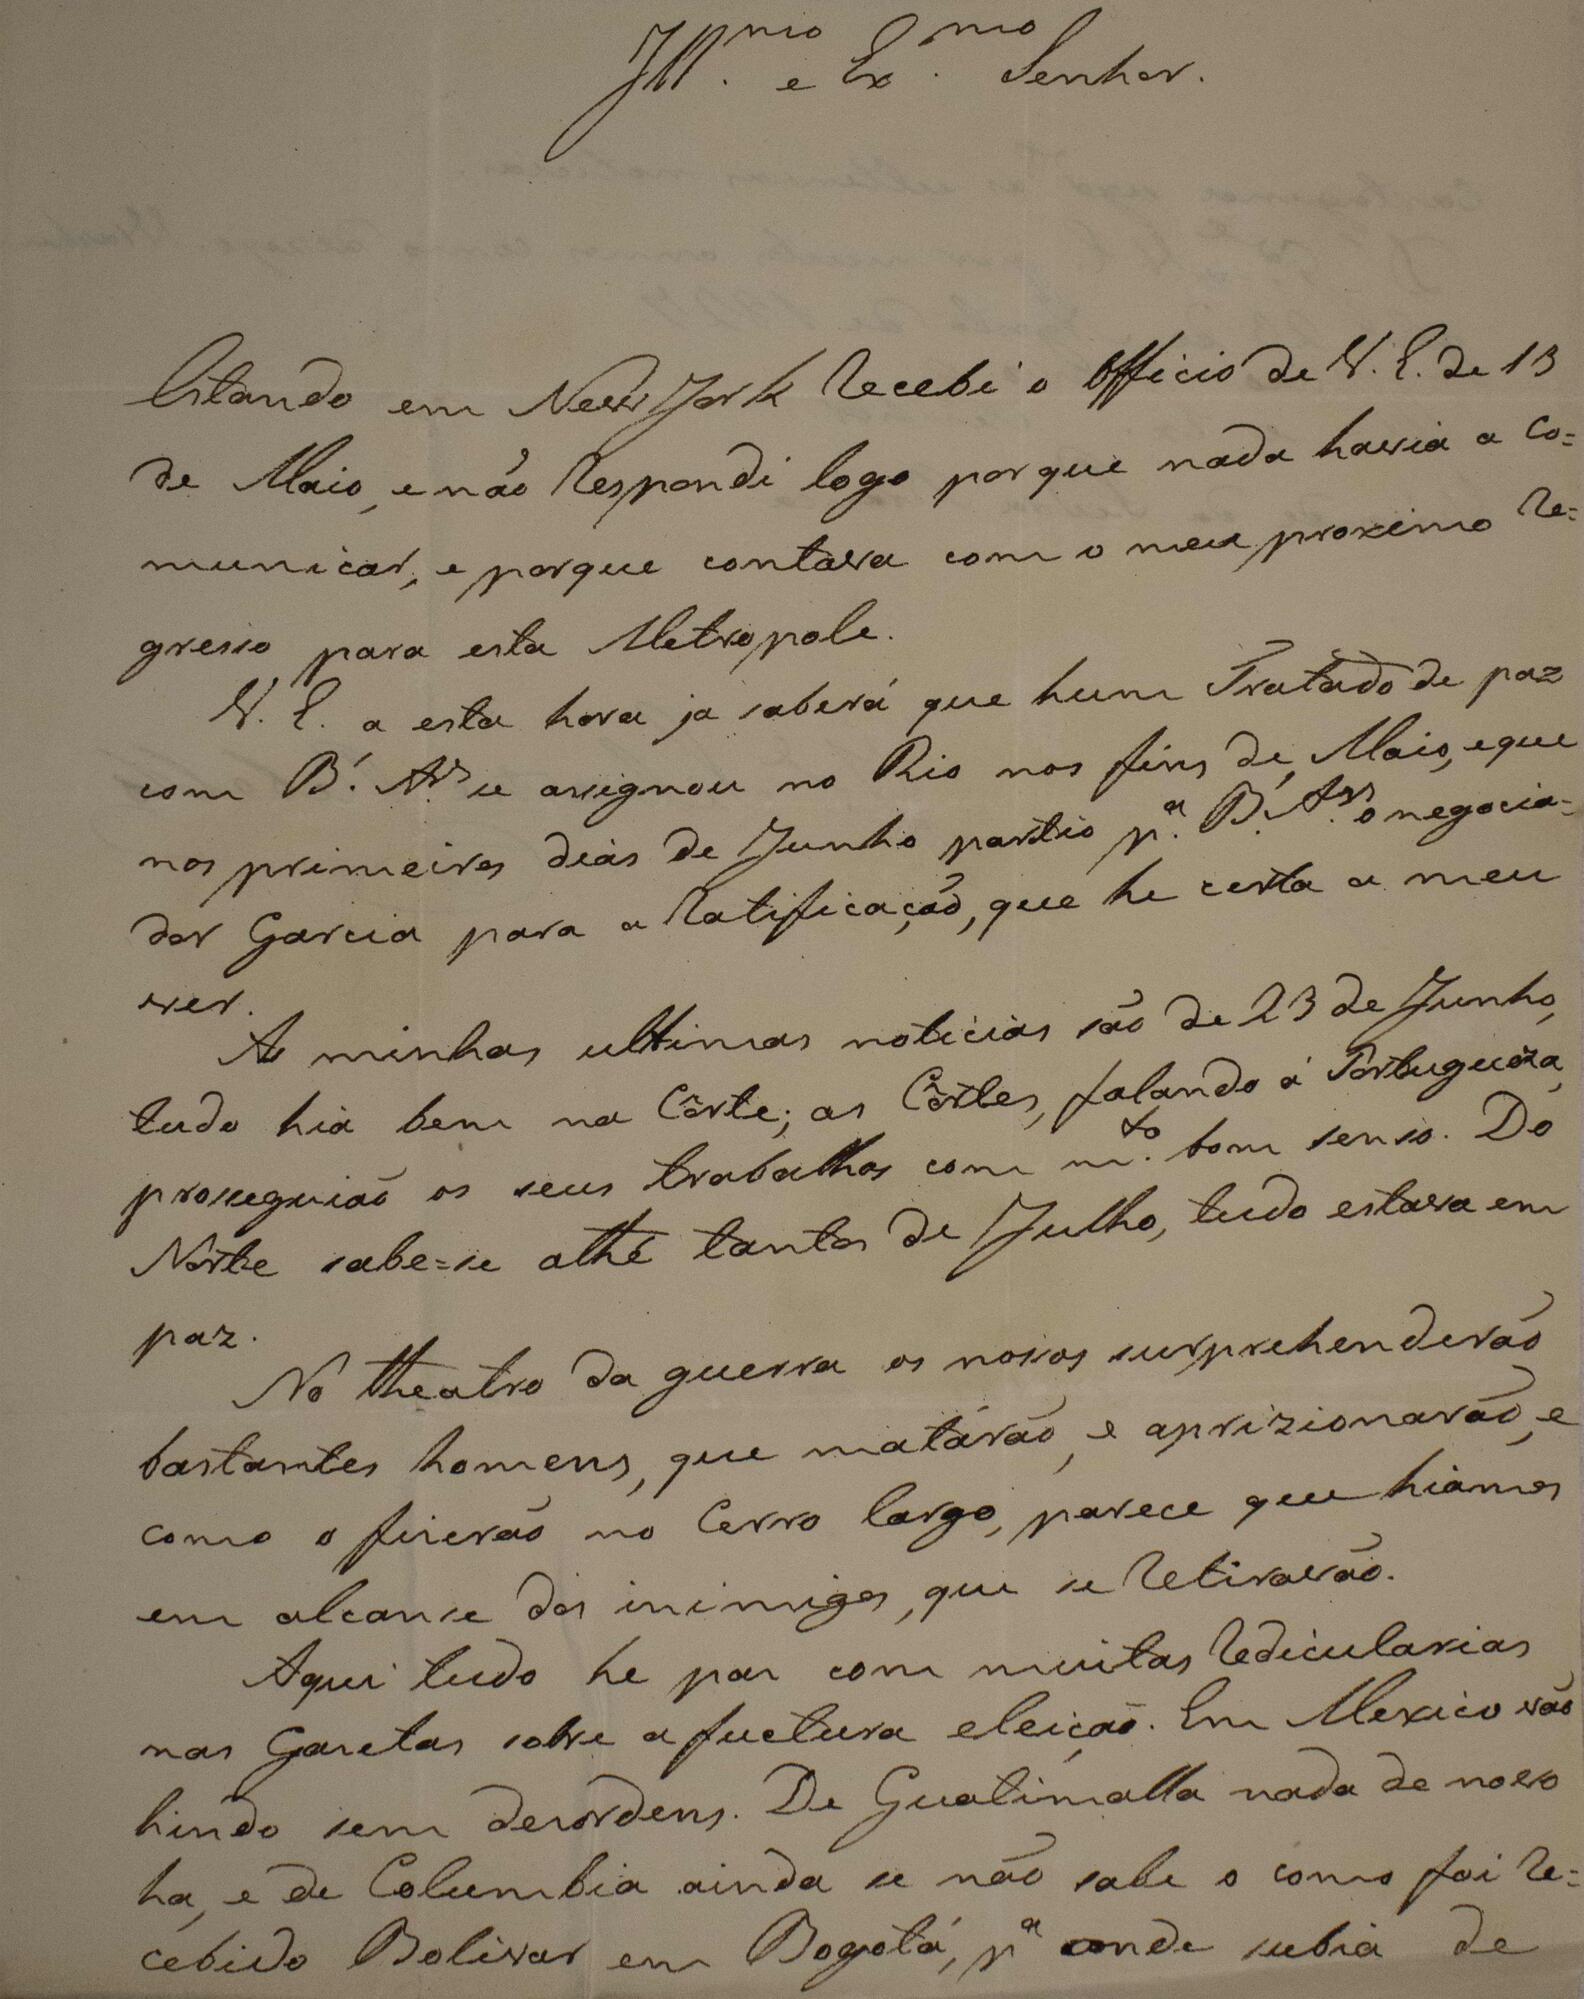 Ill.mo e Ex.mo Senhor.
Estando em New York recebi o Officio de V. E. de 13
de Maio, e não respondi logo porque nada havia a co=
municar, e porque contava com o meu proximo re=
gresso para esta Metropole.
V. E. a esta hora ja saberá que hum Tratado de paz
com B. A.s se assignou no Rio nos fins de Maio, e que
nos primeiros dias de Junho partio p.a B. A.s o negocia=
dor Garcia para a ratificação, que he certa a meu
ver.
As minhas ultimas noticias são de 23 de Junho,
tudo hia bem na Côrte; as Côrtes, falando á Portugueza,
proseguião os seus trabalhos com m.to bom senso. Do
Norte sabe=se athé tantos de Julho, tudo estava em
paz.
No theatro da guerra os nossos surprehenderão
bastantes homens, que matárão, e aprizionarão, e
como o fizerão no Cerro largo, parece que hiamos
em alcanse dos inimigos, que se retiravão.
Aqui tudo he paz com muitas redicularias
nas Gazetas sobre a fuctura eleição. Em Mexico vão
hindo sem desordens. De Guatimalla nada de novo
ha, e de Columbia ainda se não sabe o como foi re=
cebido Bolivar em Bogotá, p.a onde subia de